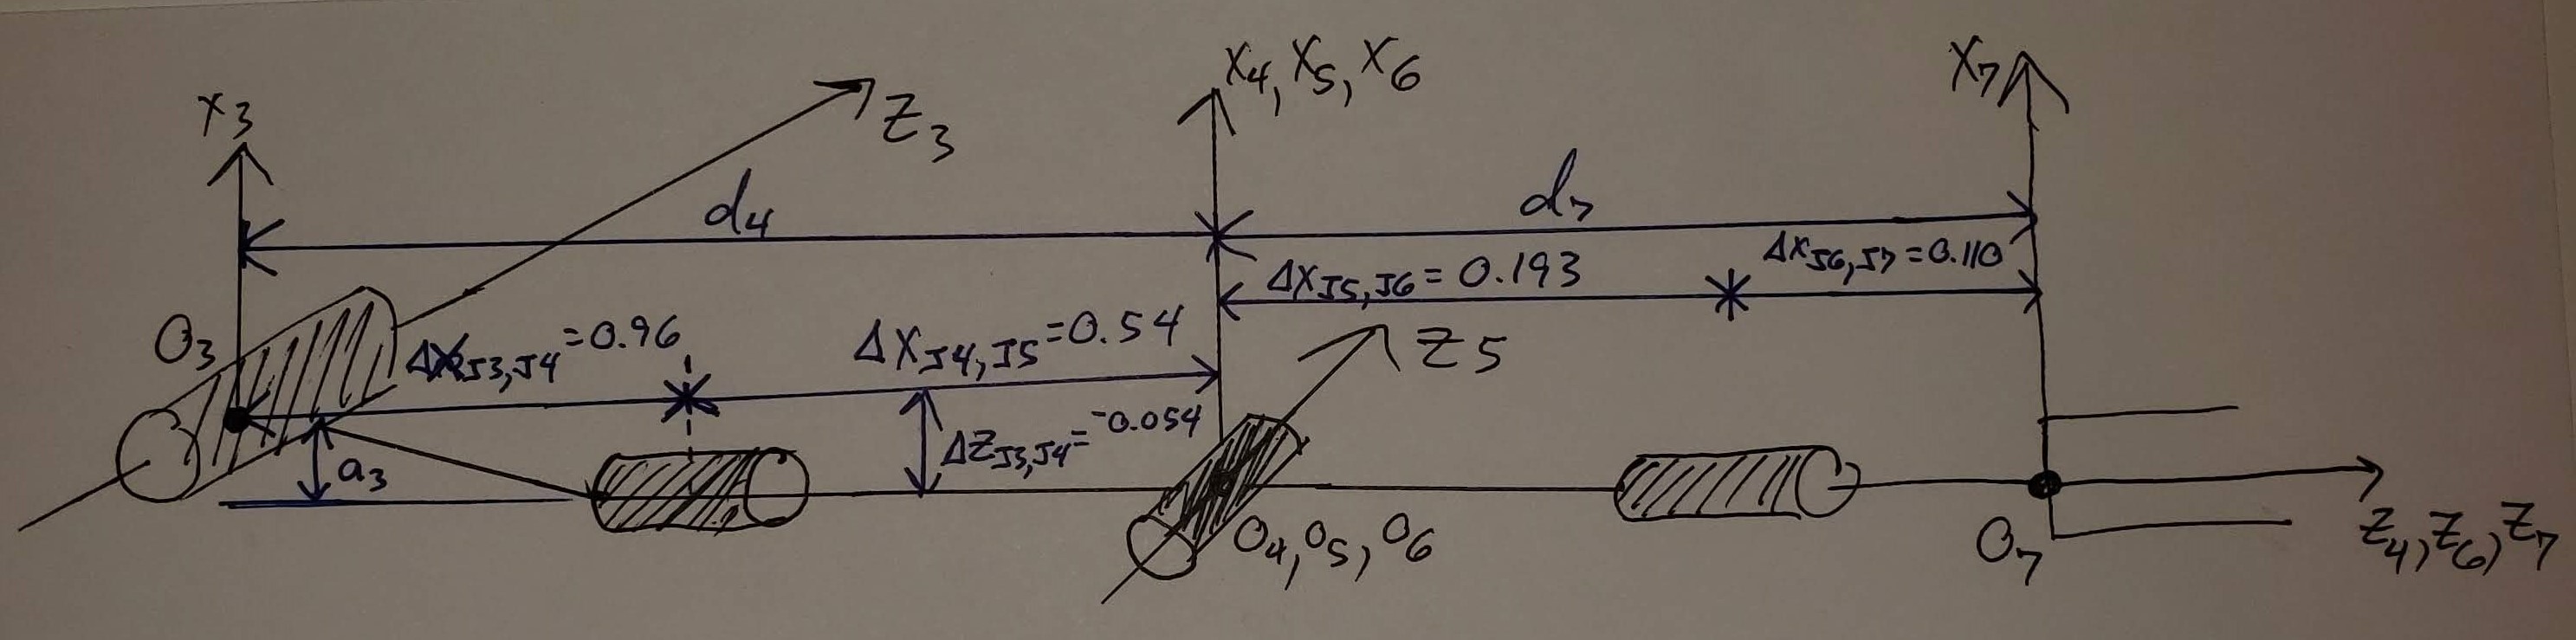 X4, X5, X6
X7
X3
Z3
d4
d7
ΔXJ5,J6 = 0.193
ΔXJ6,J7 = 0.110
O3
ΔXJ3,J4 = 0.96
ΔXJ4,J5 = 0.54
Z5
a3
ΔZJ3,J4 = -0.054
O4, O5, O6
O7
Z4, Z6, Z7